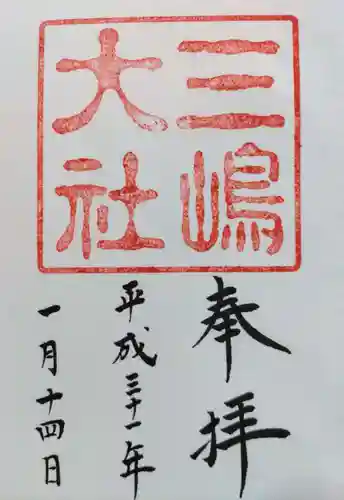 三嶋
大社
奉拝
平成三十一年
一月十四日